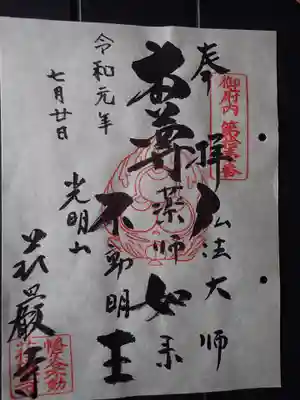 奉拝
弘法大師
本尊薬師如来
不動明王
令和元年
七月廿日
光明山
荘厳寺
御府内
幡谷不動